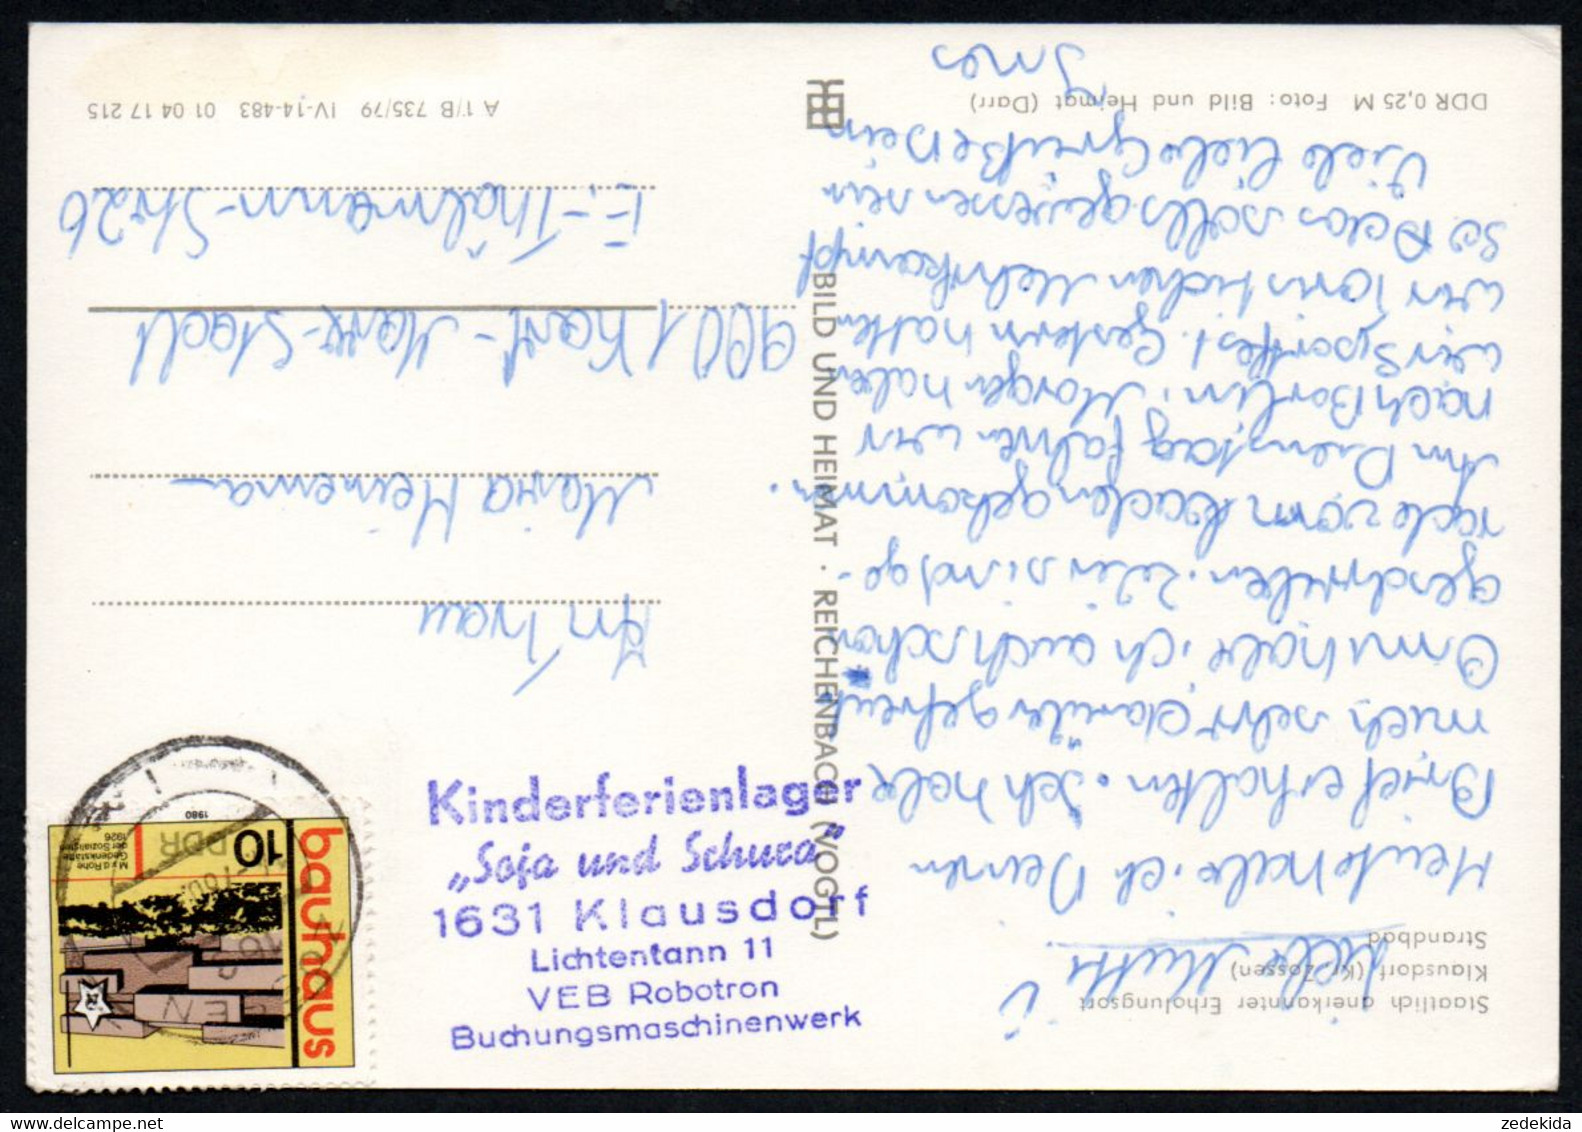 Staatlich anerkannter Erholungsort
Klausdorf (Kr. Zossen)
Strandbad
Liebe Mutti!
Heute habe ich Deinen
Brief erhalten. Ich habe
mich sehr darüber gefreut
Omi habe ich auch schon
geschrieben. Wir sind ge-
rade vom baden gekommen.
Am Dienstag fahren wir
nach Berlin. Morgen haben
wir Sportfest. Gestern hatten
wir Touristischen Mehrkampf
So das solls gewesen sein
Viele liebe Grüße Dein
Ines
DDR 0,25 M Foto: Bild und Heimat (Darr)
BILD UND HEIMAT · REICHENBACH (VOGTL)
Kinderferienlager
„Soja und Schura"
1631 Klausdorf
Lichtentann 11
VEB Robotron
Buchungsmaschinenwerk
bauhaus
10 DDR
1980
M.v.d.Rohe
Gedenkstätte
der Sozialisten
1926
An Frau
Maria Heinema
9001 Karl-Marx-Stadt
E.-Thälmann-Str. 26
A 1/B 735/79 IV-14-483 01 04 17 215
zedekida